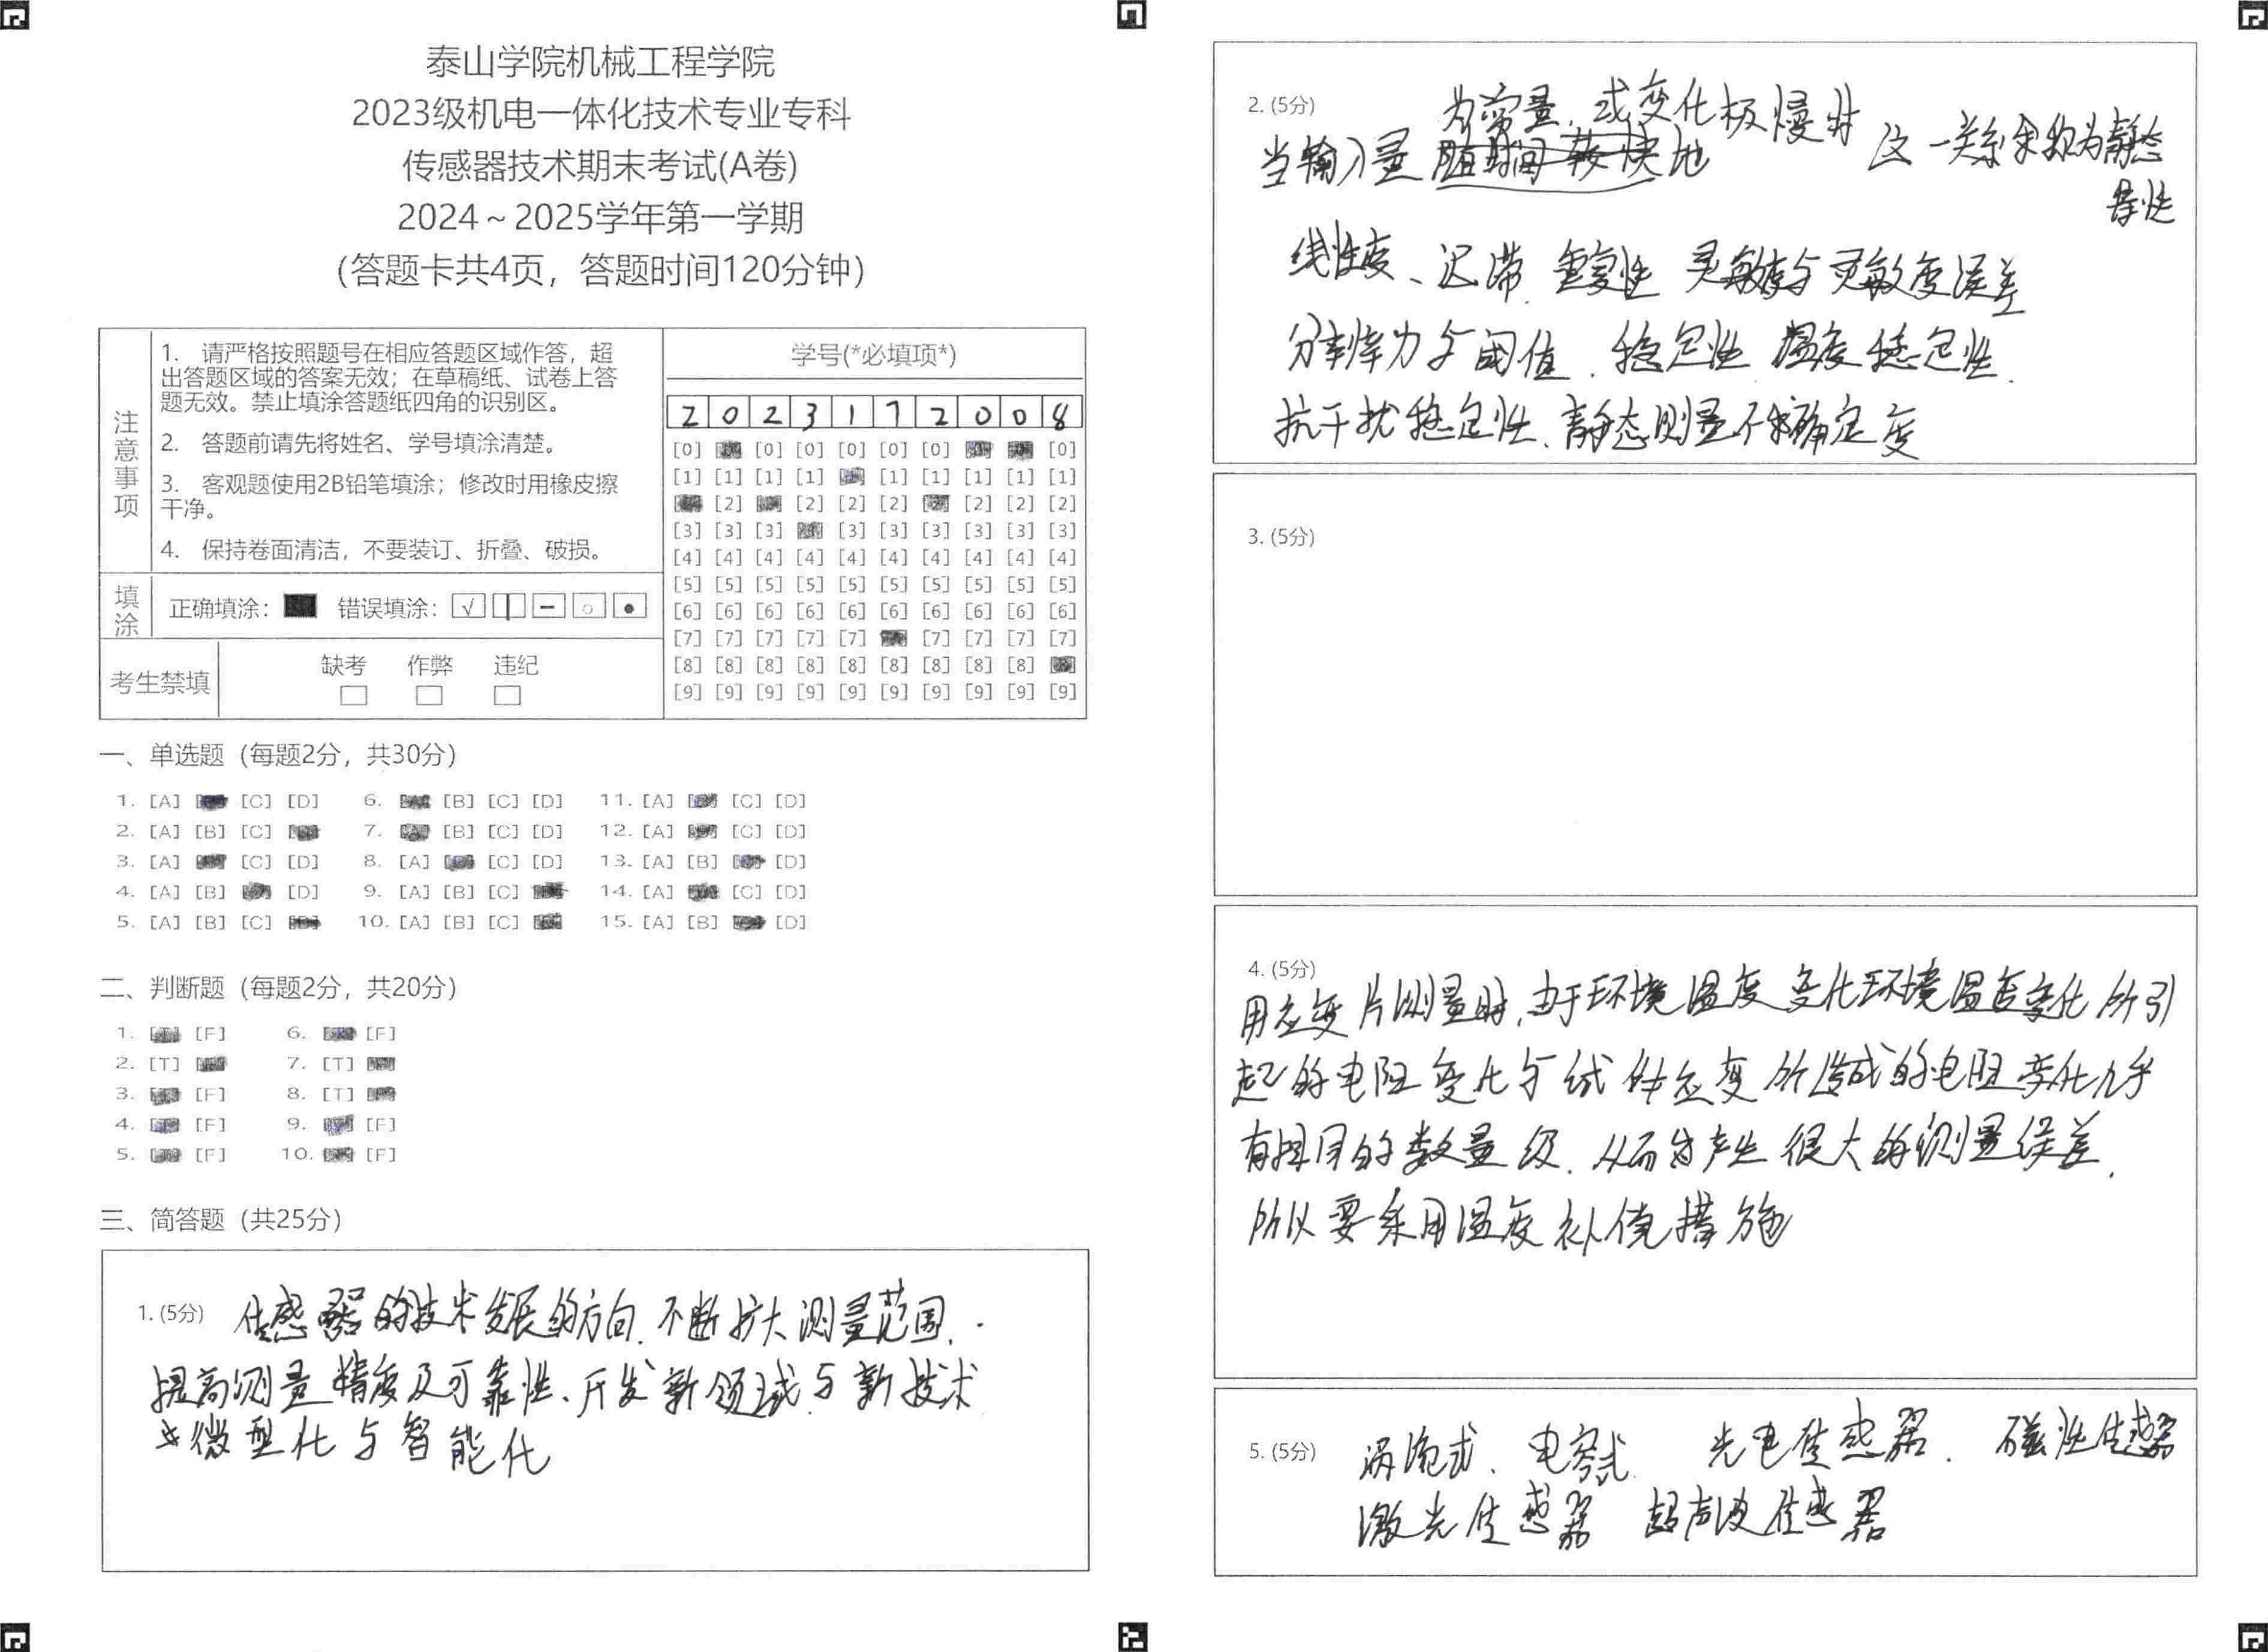 泰山学院机械工程学院
2023级机电一体化技术专业专科
传感器技术期末考试(A卷)
2024~2025学年第一学期
(答题卡共4页，答题时间120分钟)
注意事项
1. 请严格按照题号在相应答题区域作答，超
出答题区域的答案无效；在草稿纸、试卷上答
题无效。禁止填涂答题纸四角的识别区。
2. 答题前请先将姓名、学号填涂清楚。
3. 客观题使用2B铅笔填涂；修改时用橡皮擦
干净。
4. 保持卷面清洁，不要装订、折叠、破损。
填涂
正确填涂： 错误填涂：
考生禁填
缺考 作弊 违纪
学号(*必填项*)
2 0 2 3 1 7 2 0 0 8
[0] [0] [0] [0] [0] [0] [0]
[1] [1] [1] [1] [1] [1] [1] [1] [1]
[2] [2] [2] [2] [2] [2] [2]
[3] [3] [3] [3] [3] [3] [3] [3] [3]
[4] [4] [4] [4] [4] [4] [4] [4] [4] [4]
[5] [5] [5] [5] [5] [5] [5] [5] [5] [5]
[6] [6] [6] [6] [6] [6] [6] [6] [6] [6]
[7] [7] [7] [7] [7] [7] [7] [7] [7]
[8] [8] [8] [8] [8] [8] [8] [8] [8]
[9] [9] [9] [9] [9] [9] [9] [9] [9] [9]
一、单选题（每题2分，共30分）
1. [A] [C] [D] 6. [B] [C] [D] 11. [A] [C] [D]
2. [A] [B] [C] 7. [B] [C] [D] 12. [A] [C] [D]
3. [A] [C] [D] 8. [A] [C] [D] 13. [A] [B] [D]
4. [A] [B] [D] 9. [A] [B] [C] 14. [A] [C] [D]
5. [A] [B] [C] 10. [A] [B] [C] 15. [A] [B] [D]
二、判断题（每题2分，共20分）
1. [F] 6. [F]
2. [T] 7. [T]
3. [F] 8. [T]
4. [F] 9. [F]
5. [F] 10. [F]
三、简答题（共25分）
1. (5分) 传感器的技术发展的方向. 不断扩大测量范围.
提高测量精度及可靠性、开发新领域与新技术
微型化与智能化
2. (5分) 为常量，或变化极慢时
当输入量 这一关系余称为静态
特性
线性度、迟滞 重复性 灵敏度与灵敏度误差
分辨率力与阈值、稳定性 温度稳定性
抗干扰稳定性、静态测量不确定度
3. (5分)
4. (5分)
用应变片测量时，由于环境温度变化环境温度变化所引
起的电阻变化与试件应变所造成的电阻变化几乎
有相同的数量级. 从而产生很大的测量误差.
所以要采用温度补偿措施
5. (5分) 涡流式、电容式 光电传感器. 磁性传感器
激光传感器 超声波传感器